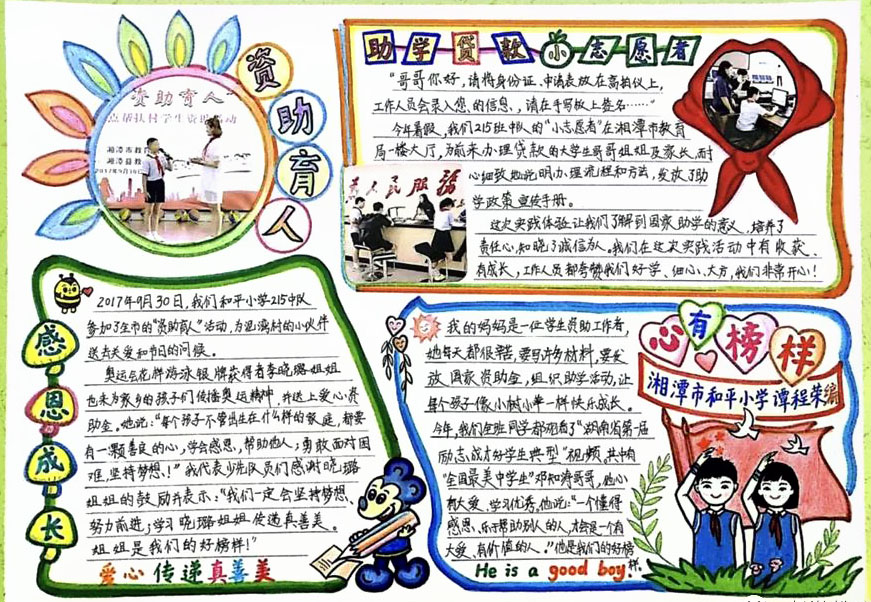 资助育人
资助育人
助学贷款小志愿者
“哥哥你好，请将身份证、申请表放在高拍仪上，
工作人员会录入您的信息，请在手写板上签名……”
今年暑假，我们215班中队的“小志愿者”在湘潭市教育
局一楼大厅，为前来办理贷款的大学生哥哥姐姐及家长，耐
心细致地说明办理流程和方法，发放了助
学政策宣传手册。
这次实践体验让我们了解到国家助学的意义，培养了
责任心，知晓了诚信为人。我们在这次实践活动中有收获、
有成长，工作人员都夸赞我们好学、细心、大方，我们非常开心！
为人民服务
感恩成长
2017年9月30日，我们和平小学215中队
参加了全市的“资助育人”活动，为
送去关爱和节日的问候。
奥运会花样游泳银牌获得者李晓璐姐姐
也来为家乡的孩子们传播奥运精神，并送上爱心资
助金。她说：“每个孩子不管出生在什么样的家庭，都要
有一颗善良的心，学会感恩，帮助他人；勇敢面对困
难，坚持梦想！”我代表少先队员们感谢晓璐
姐姐的鼓励并表示：“我们一定会坚持梦想、
努力前进；学习晓璐姐姐传递真善美。
姐姐是我们的好榜样！”
爱心传递真善美
心有榜样
湘潭市和平小学 谭程荣编
我的妈妈是一位学生资助工作者，
她每天都很辛苦，要写许多材料，要发
放国家资助金，组织助学活动，让
每个孩子像小树小草一样快乐成长。
今年，我们全班同学都观看了“湖南省第一届
励志成才好学生典型”视频。其中有
“全国最美中学生”邓知涛哥哥，他心
有大爱、学习优秀，他说：“一个懂得
感恩、乐于帮助别人的人，才会是一个有
大爱、有价值的人。”他是我们的好榜样。
He is a good boy!